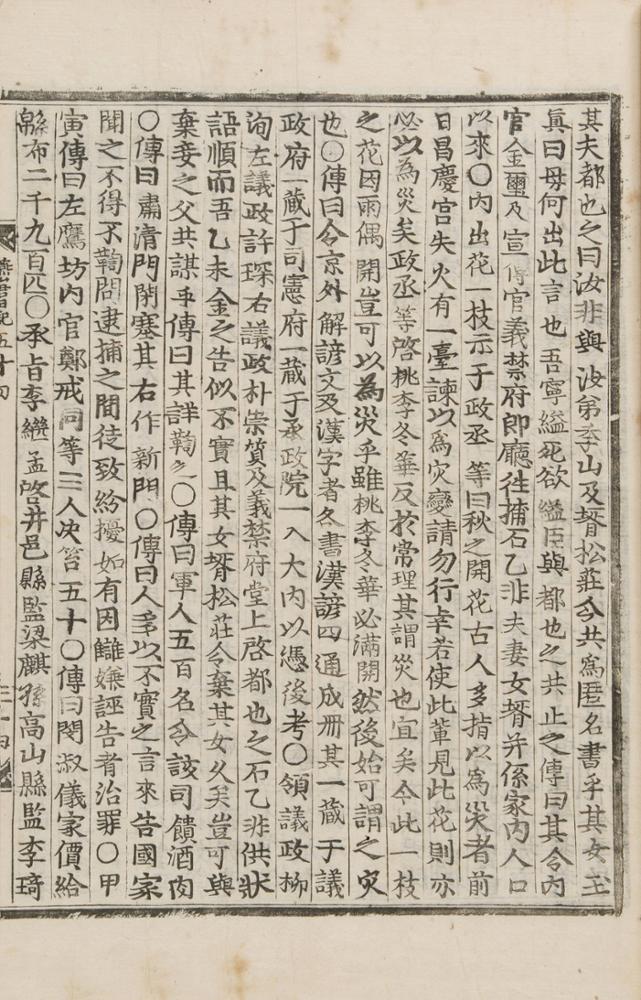 其夫都也之曰汝非與汝弟季山及壻松莊令共爲匿名書乎其女玉
眞曰母何出此言也吾寧縊死欲縊臣與都也之共止之傳曰其令內
官金璽及宣傳官義禁府郞廳往捕石乙非夫妻女壻幷係家內人口
以來○內出花一枝示于政丞等曰秋之開花古人多指以爲災者前
日昌慶宮失火有一臺諫以爲灾變請勿行幸若使此輩見此花則亦
必以為災矣政丞等啓桃李冬華反於常理其謂災也宜矣今此一枝
之花因雨偶開豈可以為災乎雖桃李冬華必滿開然後始可謂之灾
也○傳曰令京外解諺文及漢字者各書漢諺四通成冊其一藏于議
政府一藏于司憲府一藏于承政院一入大內以憑後考○領議政柳
洵左議政許琛右議政朴崇質及義禁府堂上啓都也之石乙非供狀
語順而吾乙未金之告似不實且其女壻松莊令棄其女久矣豈可與
棄妾之父共謀乎傳曰其詳鞫之○傳曰軍人五百名令該司饋酒肉
○傳曰肅淸門閉塞其右作新門○傳曰人多以不實之言來告國家
聞之不得不鞫問逮捕之間徒致紛擾如有因讎嫌誣告者治罪○甲
寅傳曰左鷹坊內官鄭戒同等三人决笞五十○傳曰閔淑儀家價給
緜布二千九百匹○承旨李繼孟啓井邑縣監梁麒孫高山縣監李琦
燕山君日記五十四